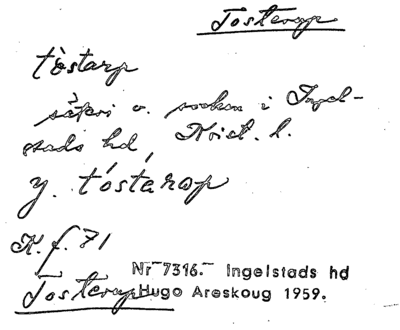 Tosterup
tòstarp
säteri o. socken i Ingel-
stads hd, Krist. l.
y. tóstarop
K. f. 71
Nr 7316. Ingelstads hd
Tosterup Hugo Areskoug 1959.